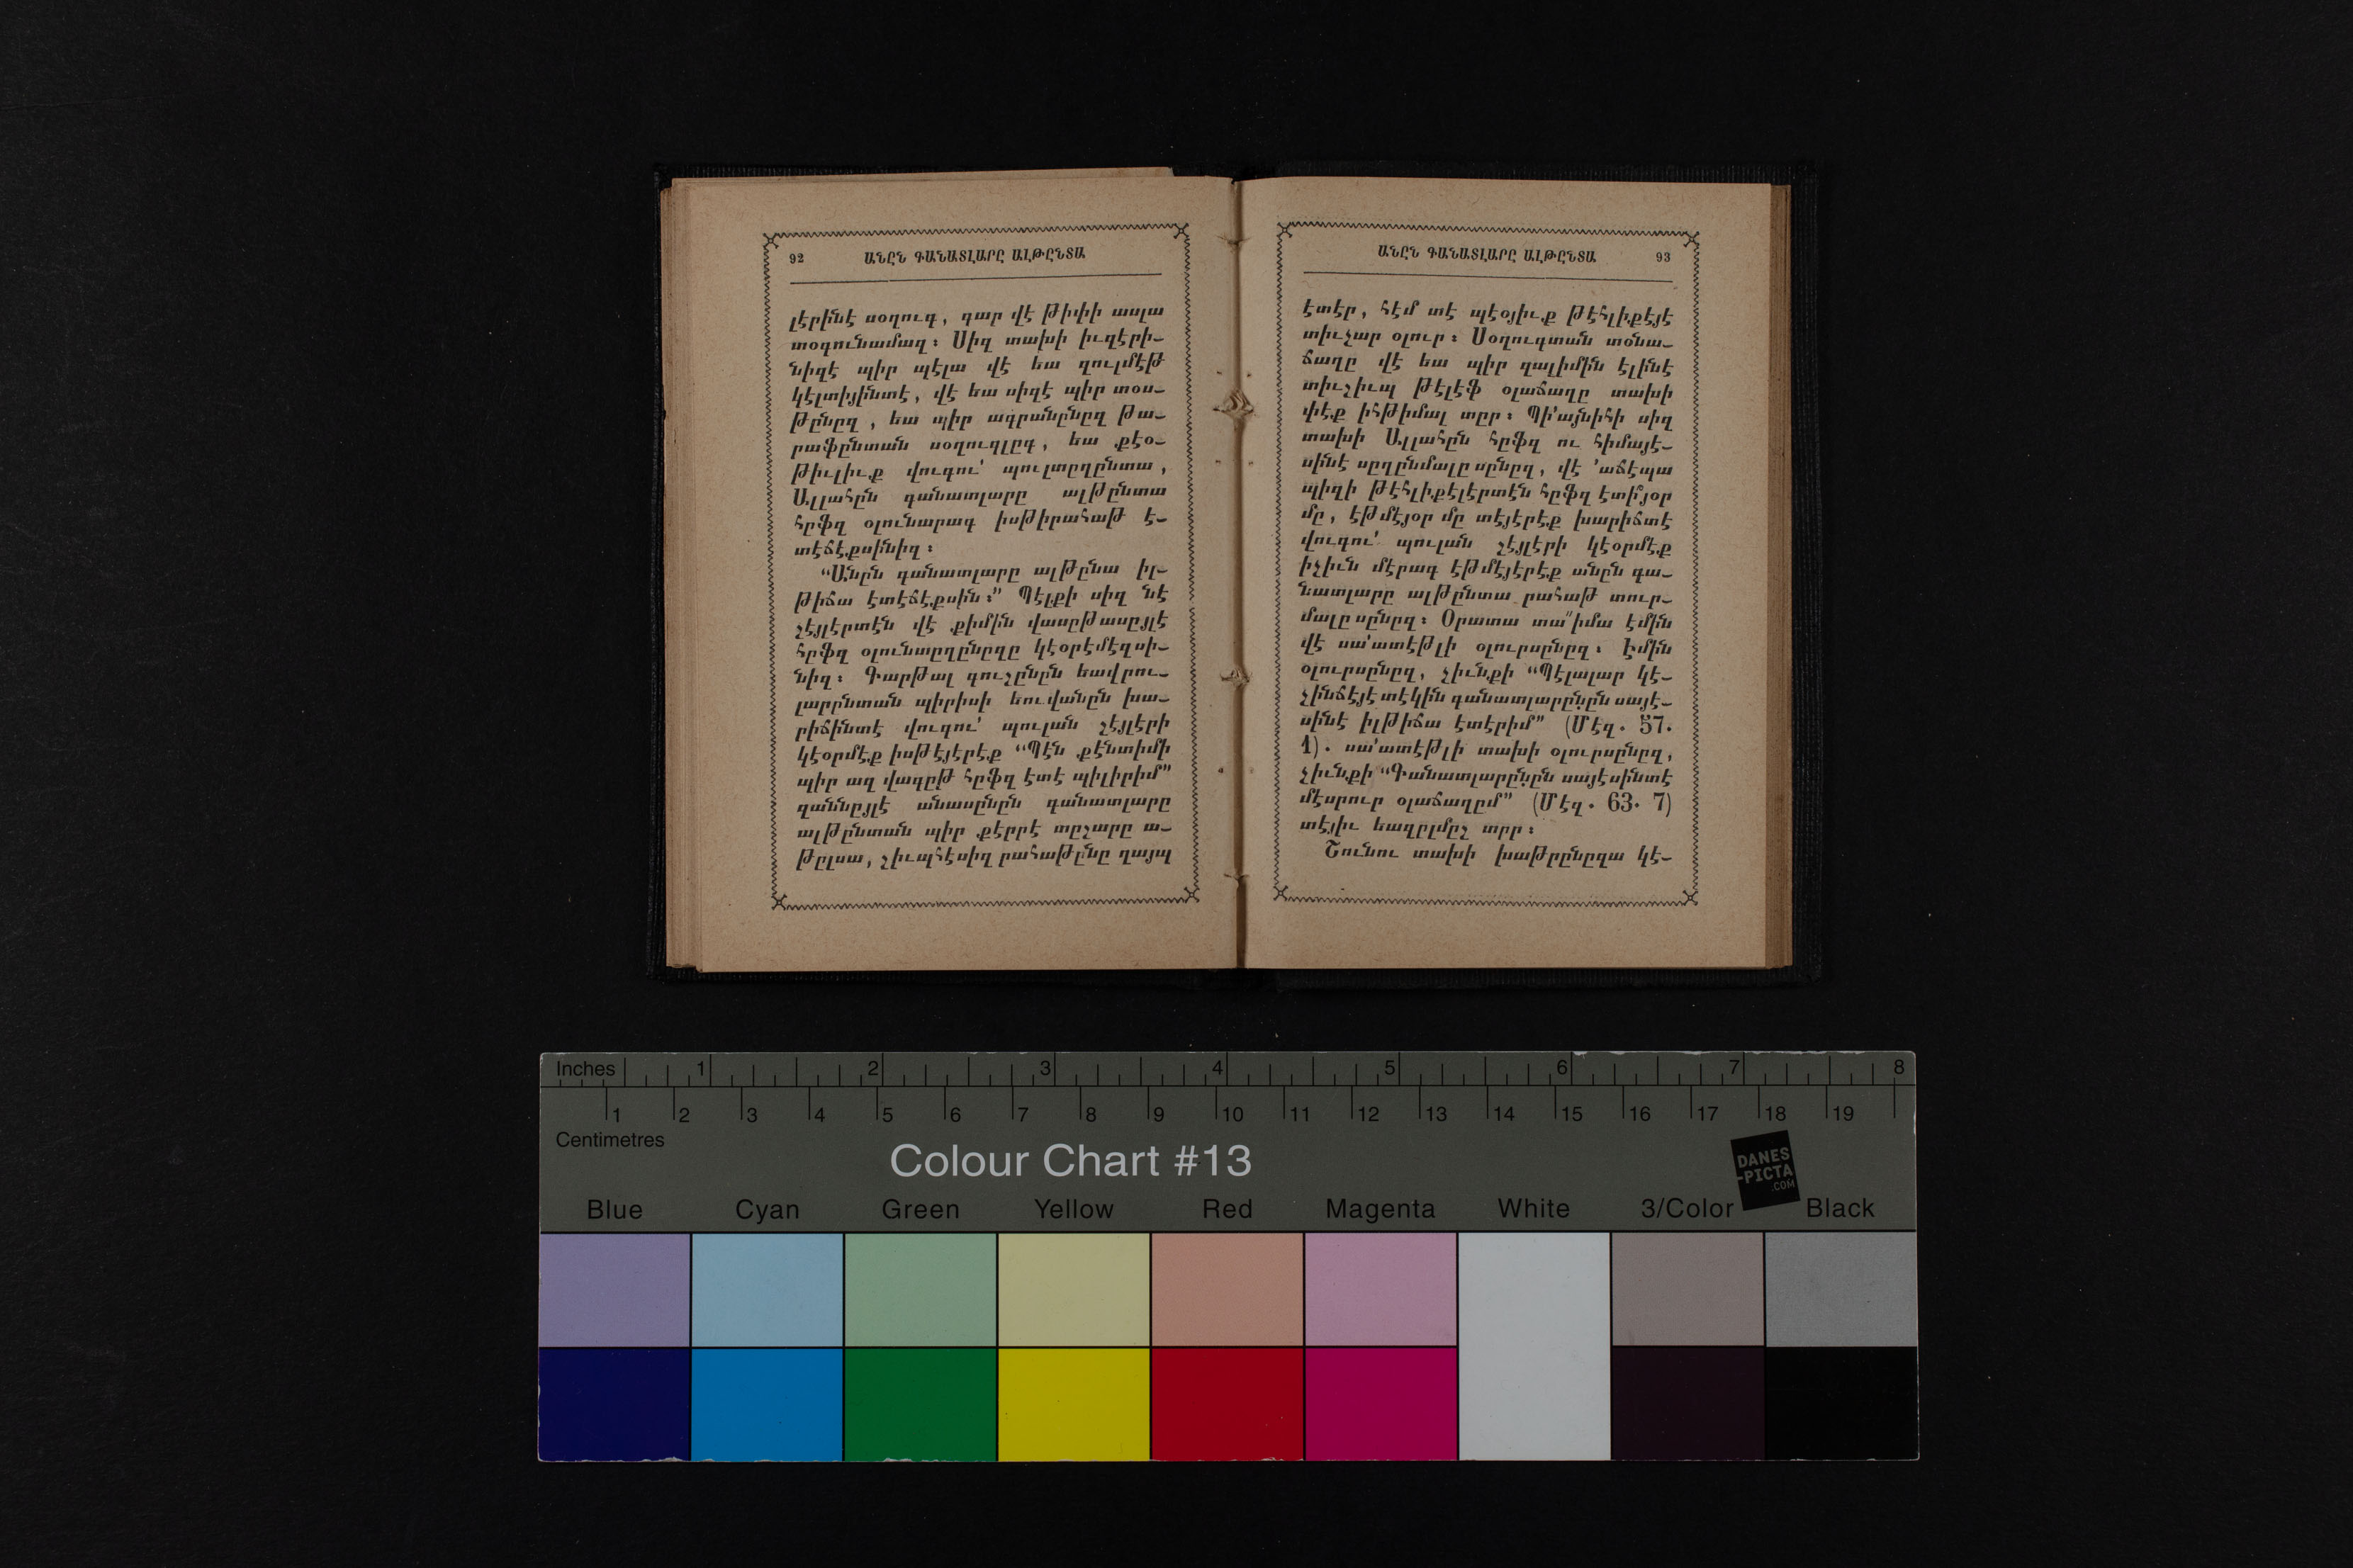 92 ԱՆԸՆ ԳԱՆԱՏԼԱՐԸ ԱԼԹԸՆՏԱ
լէրինէ սօղուգ, գար վէ թիփի ասլա
տօգունամազ։ Սիզ տախի իւզէրի–
նիզէ պիր պէլա վէ եա զուլմէթ
կէլտիյինտէ, վէ եա սիզէ պիր տօս–
թընըզ, եա պիր ագրանընըզ թա–
րաֆընտան սօղուգլըգ, եա քէօ–
թիւլիւք վուգու՛ պուլտըղընտա,
Ալլահըն գանատլարը ալթընտա
հըֆզ օլունարագ իսթիրահաթ է–
տէճէքսինիզ։
“Անըն գանատլարը ալթընա իլ–
թիճա էտէճէքսին։” Պէլքի սիզ նէ
շէյլէրտէն վէ քիմին վասըթասըյլէ
հըֆզ օլունտըղընըզը կէօրէմէզսի–
նիզ։ Գարթալ գուշընըն եավրու–
լարընտան պիրիսի եուվանըն խա–
րիճինտէ վուգու՛ պուլան շէյլէրի
կէօրմէք իսթէյէրէք “Պէն քէնտիմի
պիր ազ վագըթ հըֆզ էտէ պիլիրիմ”
զաննըյլէ անասընըն գանատլարը
ալթընտան պիր քէրրէ տըշարը ա–
թըլսա, շիւպհէսիզ րահաթընը ղայպ
ԱՆԸՆ ԳԱՆԱՏԼԱՐԸ ԱԼԹԸՆՏԱ 93
էտէր, հէմ տէ պէօյիւք թէհլիքէյէ
տիւչար օլուր։ Սօղուգտան տօնա–
ճաղը վէ եա պիր զալիմին էլինէ
տիւշիւպ թէլէֆ օլաճաղը տախի
փէք իհթիմալ տըր։ Պի՛այնիհի սիզ
տախի Ալլահըն հըֆզ ու հիմայէ–
սինէ սըղընմալըսընըզ, վէ ՛աճէպա
պիզի թէհլիքէլէրտէն հըֆզ էտիյօր
մը, էթմէյօր մը տէյէրէք խարիճտէ
վուգու՛ պուլան շէյլէրի կէօրմէք
իչիւն մէրագ էթմէյէրէք անըն գա–
նատլարը ալթընտա րահաթ տուր–
մալըսընըզ։ Օրատա տա՞իմա էմին
վէ սա՛ատէթլի օլուրսընըզ։ Էմին
օլուրսընըզ, չիւնքի “Պէլալար կէ–
չինճէյէտէկին գանատլարընըն սայէ–
սինէ իլթիճա էտէրիմ” (Մէզ. 57.
1). սա՛ատէթլի տախի օլուրսընըզ,
չիւնքի “Գանատլարընըն սայէսինտէ
մէսրուր օլաճաղըմ” (Մէզ. 63. 7)
տէյիւ եազըլմըշ տըր։
Շունու տախի խաթրընըզա կէ–
Inches 1 2 3 4 5 6 7 8
1 2 3 4 5 6 7 8 9 10 11 12 13 14 15 16 17 18 19
Centimetres
Colour Chart #13
DANES
-PICTA
.COM
Blue Cyan Green Yellow Red Magenta White 3/Color Black